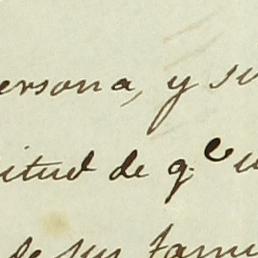 ersona, y su
itud de q.e u
de sus fami